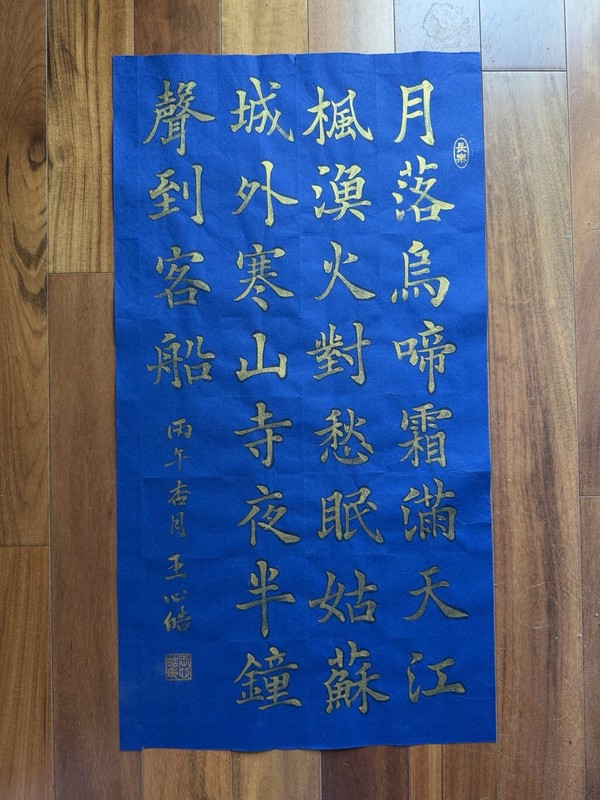 月落烏啼霜滿天江
楓漁火對愁眠姑蘇
城外寒山寺夜半鐘
聲到客船
丙午杏月王心皓
長樂